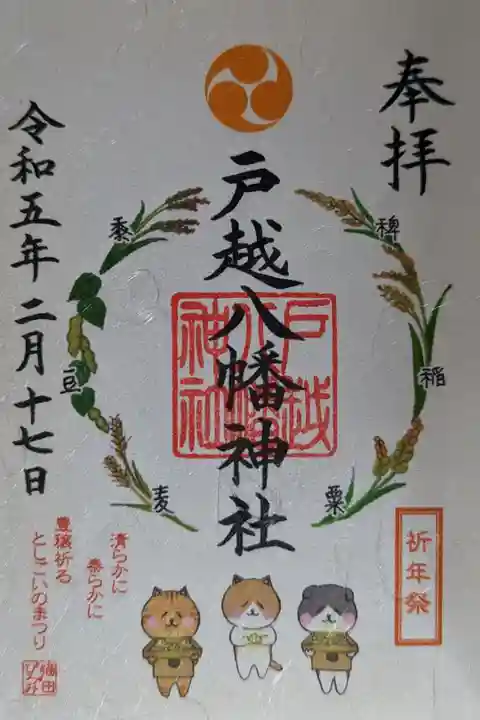 奉拝
戸越八幡神社
戸越
八幡
神社
令和五年二月十七日
稗
稲
粟
麦
豆
黍
祈年祭
清らかに
泰らかに
豊穣祈る
としごいのまつり